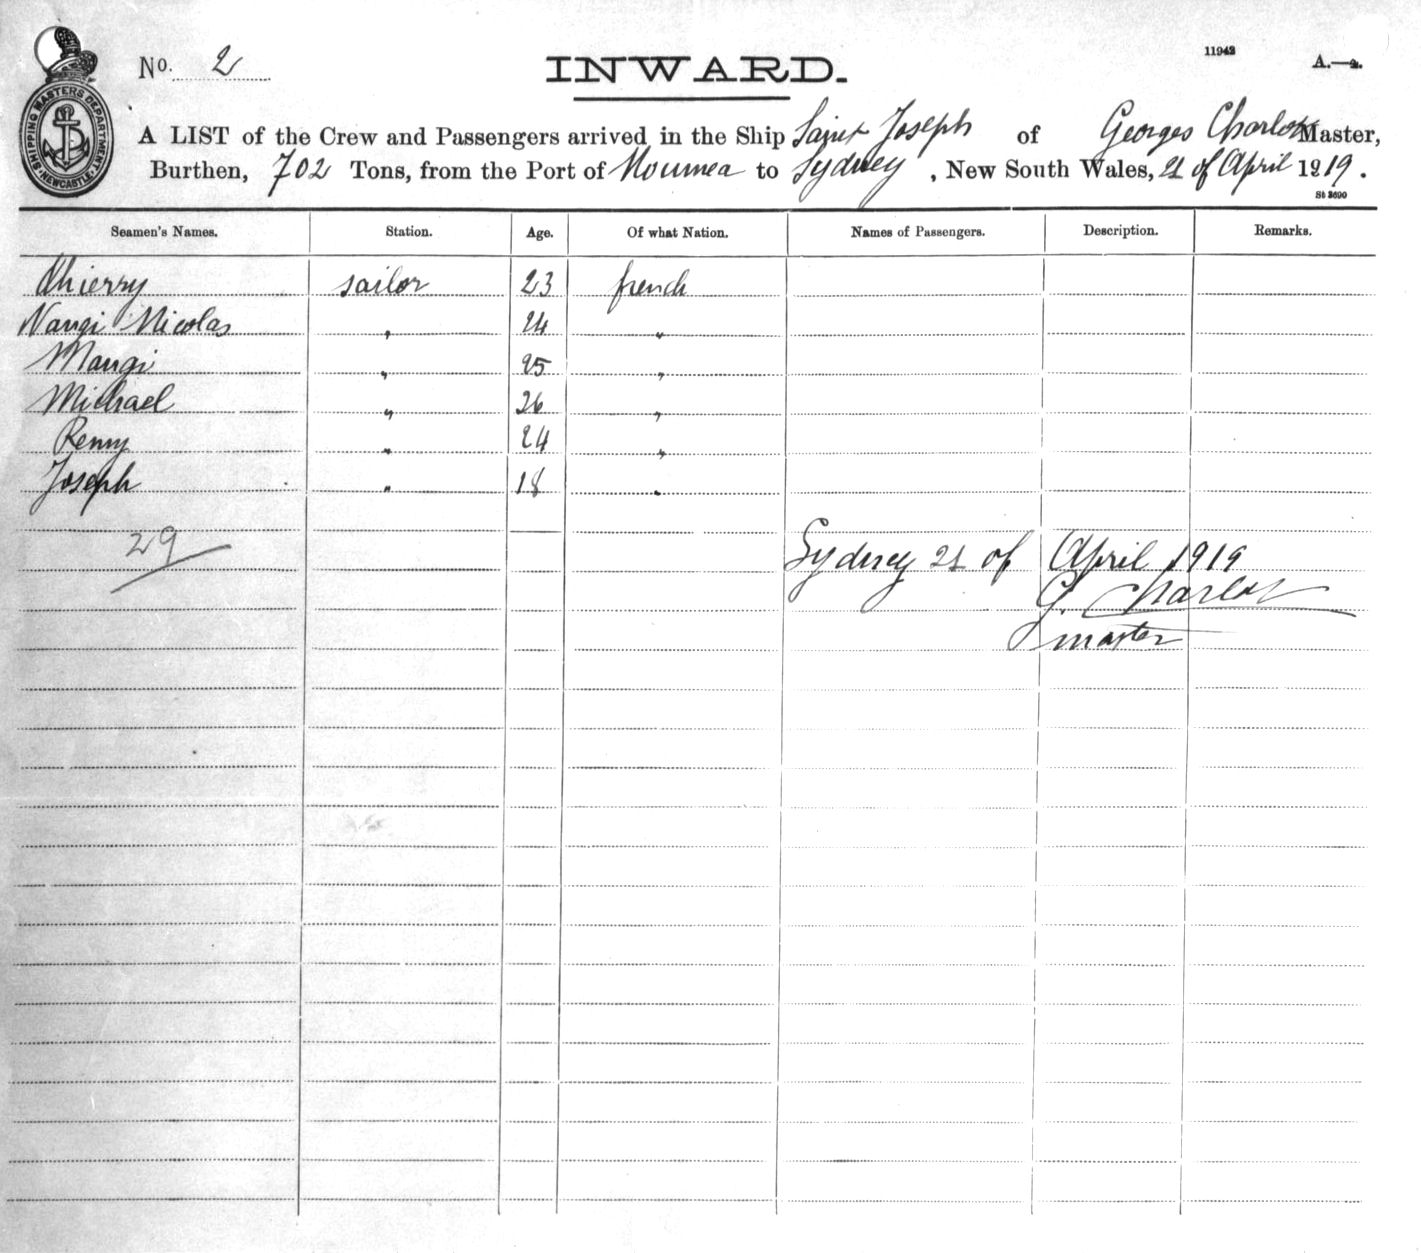 SHIPPING MASTERS DEPARTMENT. NEWCASTLE.
No. 2
INWARD.
11942
A.—2.
A LIST of the Crew and Passengers arrived in the Ship Saint Joseph of Georges Charlot Master,
Burthen, 702 Tons, from the Port of Noumea to Sydney, New South Wales, 21 of April 1919.
St 3690
Seamen's Names. Station. Age. Of what Nation. Names of Passengers. Description. Remarks.
Thierry sailor 23 french
Nangi Nicolas " 24 "
Mangi " 25 "
Michael " 26 "
Remy " 24 "
Joseph " 18 "
29
Sydney 21 of April 1919
G. Charlot
master